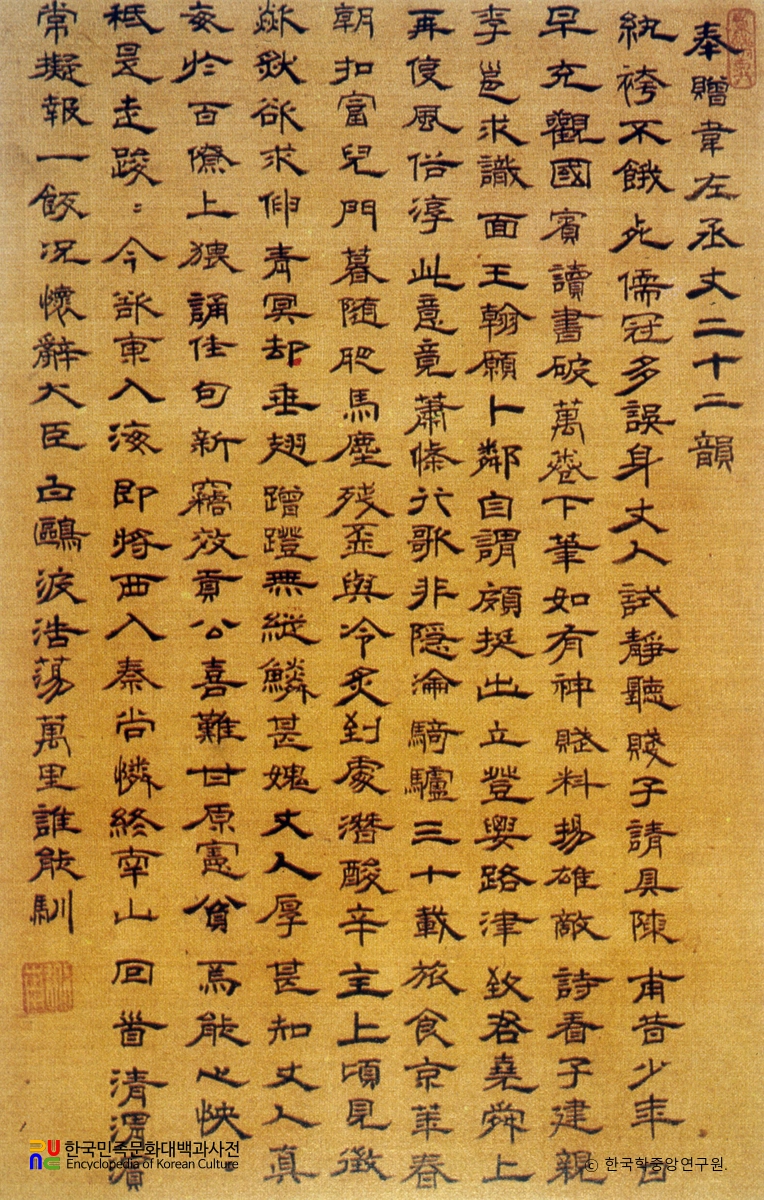 奉贈韋左丞丈二十二韻
紈袴不餓死儒冠多誤身丈人試靜聽賤子請具陳甫昔少年日
早充觀國賓讀書破萬卷下筆如有神賦料揚雄敵詩看子建親
李邕求識面王翰願卜鄰自謂頗挺出立登要路津致君堯舜上
再使風俗淳此意竟蕭條行歌非隱淪騎驢三十載旅食京華春
朝扣富兒門暮隨肥馬塵殘盃與冷炙到處潛酸辛主上頃見徵
欻然欲求伸青冥却垂翅蹭蹬無縱鱗甚愧丈人厚甚知丈人真
每於百僚上猥誦佳句新竊效貢公喜難甘原憲貧焉能心怏〻
祗是走踆〻今欲東入海即將西入秦尚憐終南山回首清渭濱
常擬報一飯況懷辭大臣白鷗波浩蕩萬里誰能馴
한국민족문화대백과사전
Encyclopedia of Korean Culture
© 한국학중앙연구원.